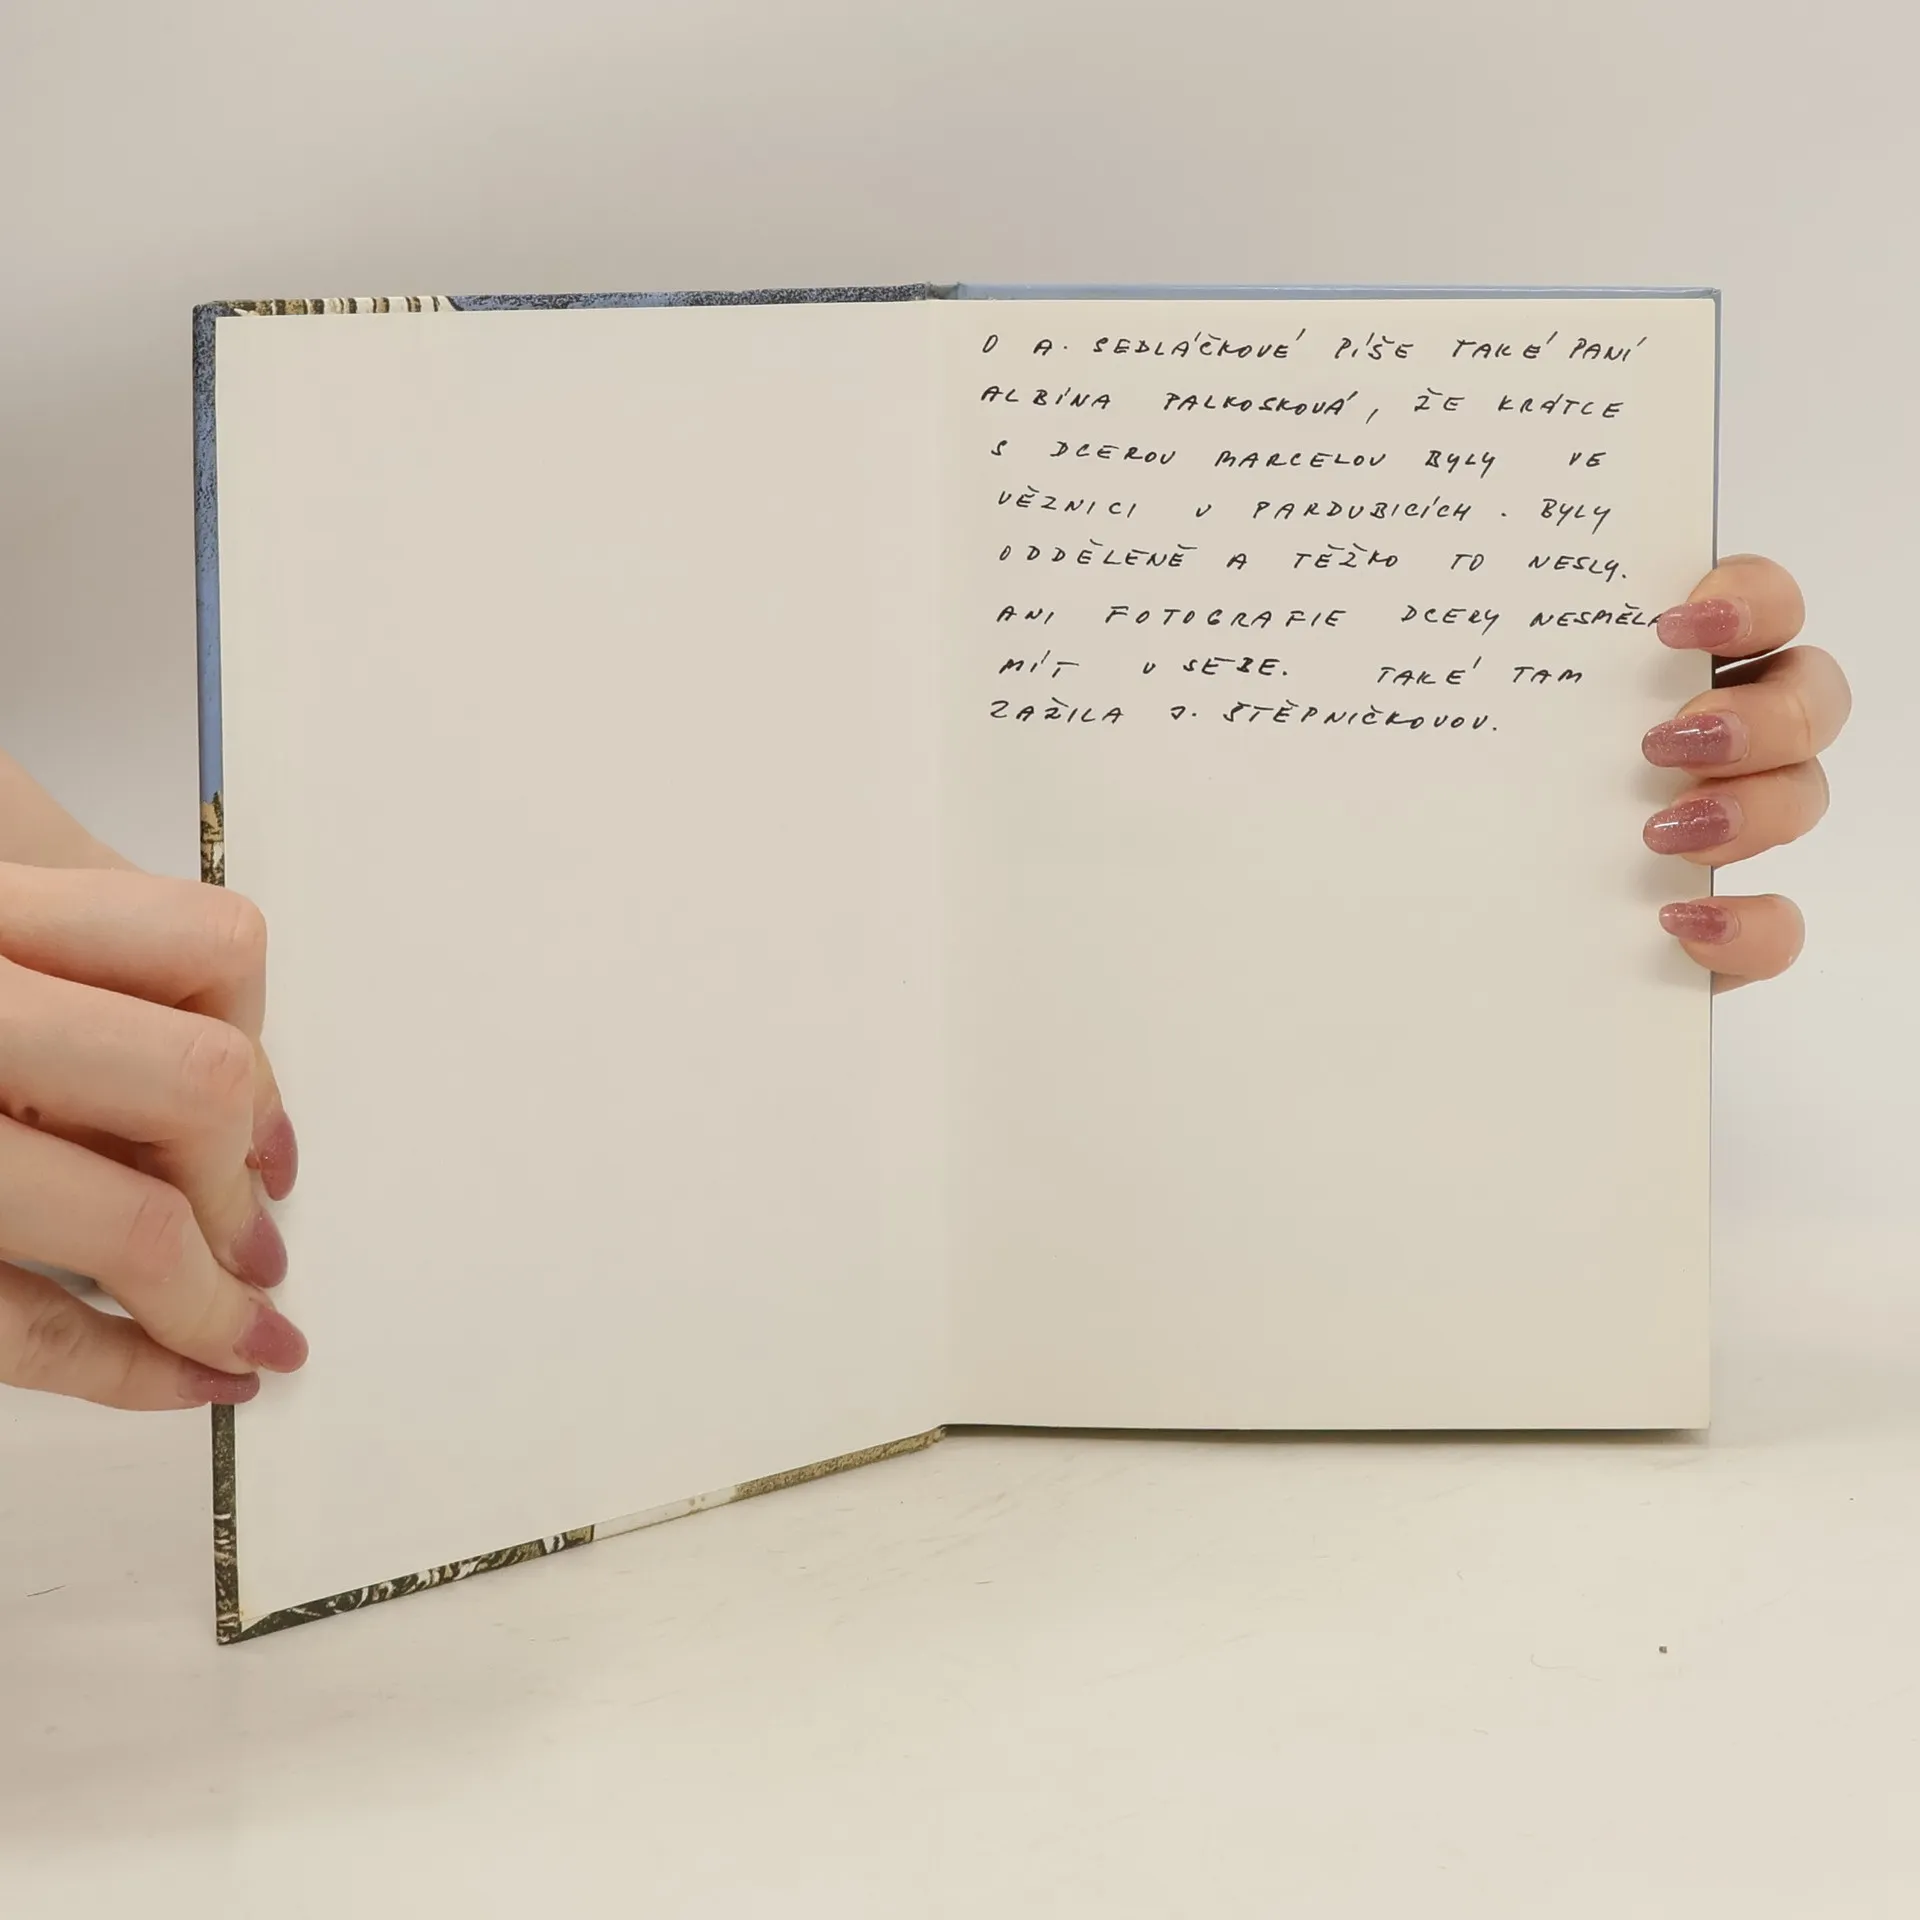 O A. SEDLÁČKOVÉ PÍŠE TAKÉ PANÍ
ALBÍNA PALKOSKOVÁ, ŽE KRÁTCE
S DCEROU MARCELOU BYLY VE
VĚZNICI V PARDUBICÍCH. BYLY
ODDĚLENĚ A TĚŽKO TO NESLY.
ANI FOTOGRAFIE DCERY NESMĚLA
MÍT U SEBE. TAKÉ TAM
ZAŽILA J. ŠTĚPNIČKOVOU.